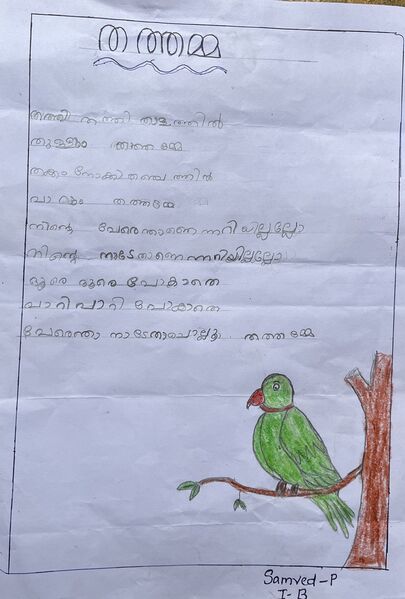 തത്തമ്മ
തത്തി തത്തി താളത്തിൽ
തുള്ളും തത്തമ്മേ
തക്കം നോക്കി തഞ്ചത്തിൽ
പാറും തത്തമ്മേ
നിന്റെ പേരെന്താണെന്നറിയില്ലല്ലോ
നിന്റെ നാടേതാണെന്നറിയില്ലല്ലോ
ദൂരെ ദൂരെ പോകാതെ
പാറി പാറി പോകാതെ
പേരെന്താ നാടേതാ ചൊല്ലൂ തത്തമ്മേ
Samved-P
I-B